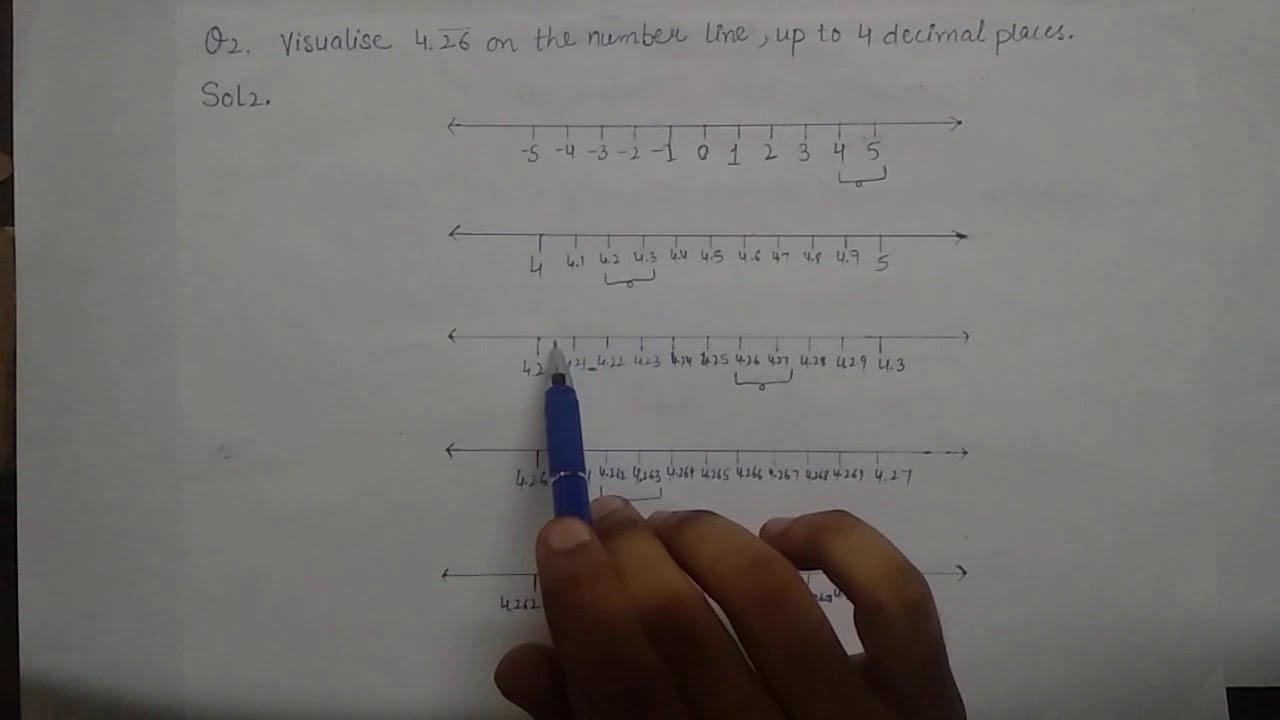 Q2. Visualise 4.2̅6̅ on the number line, up to 4 decimal places.
Sol2.
-5 -4 -3 -2 -1 0 1 2 3 4 5
4 4.1 4.2 4.3 4.4 4.5 4.6 4.7 4.8 4.9 5
4.22 4.23 4.24 4.25 4.26 4.27 4.28 4.29 4.3
4.26 4.262 4.263 4.264 4.265 4.266 4.267 4.268 4.269 4.27
4.262